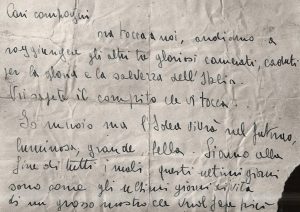 Cari compagni
ora tocca a noi, andiamo a
raggiungere gli altri tre gloriosi compagni, caduti
per la gloria e la salvezza dell'Italia.
Voi sapete il compito che vi tocca.
Io muoio ma l'Idea vivrà nel futuro,
luminosa, grande e bella. Siamo alla
fine di tutti i mali. Questi ultimi giorni
sono come gli ultimi giorni di vita
di un grosso mostro che vuol fare più